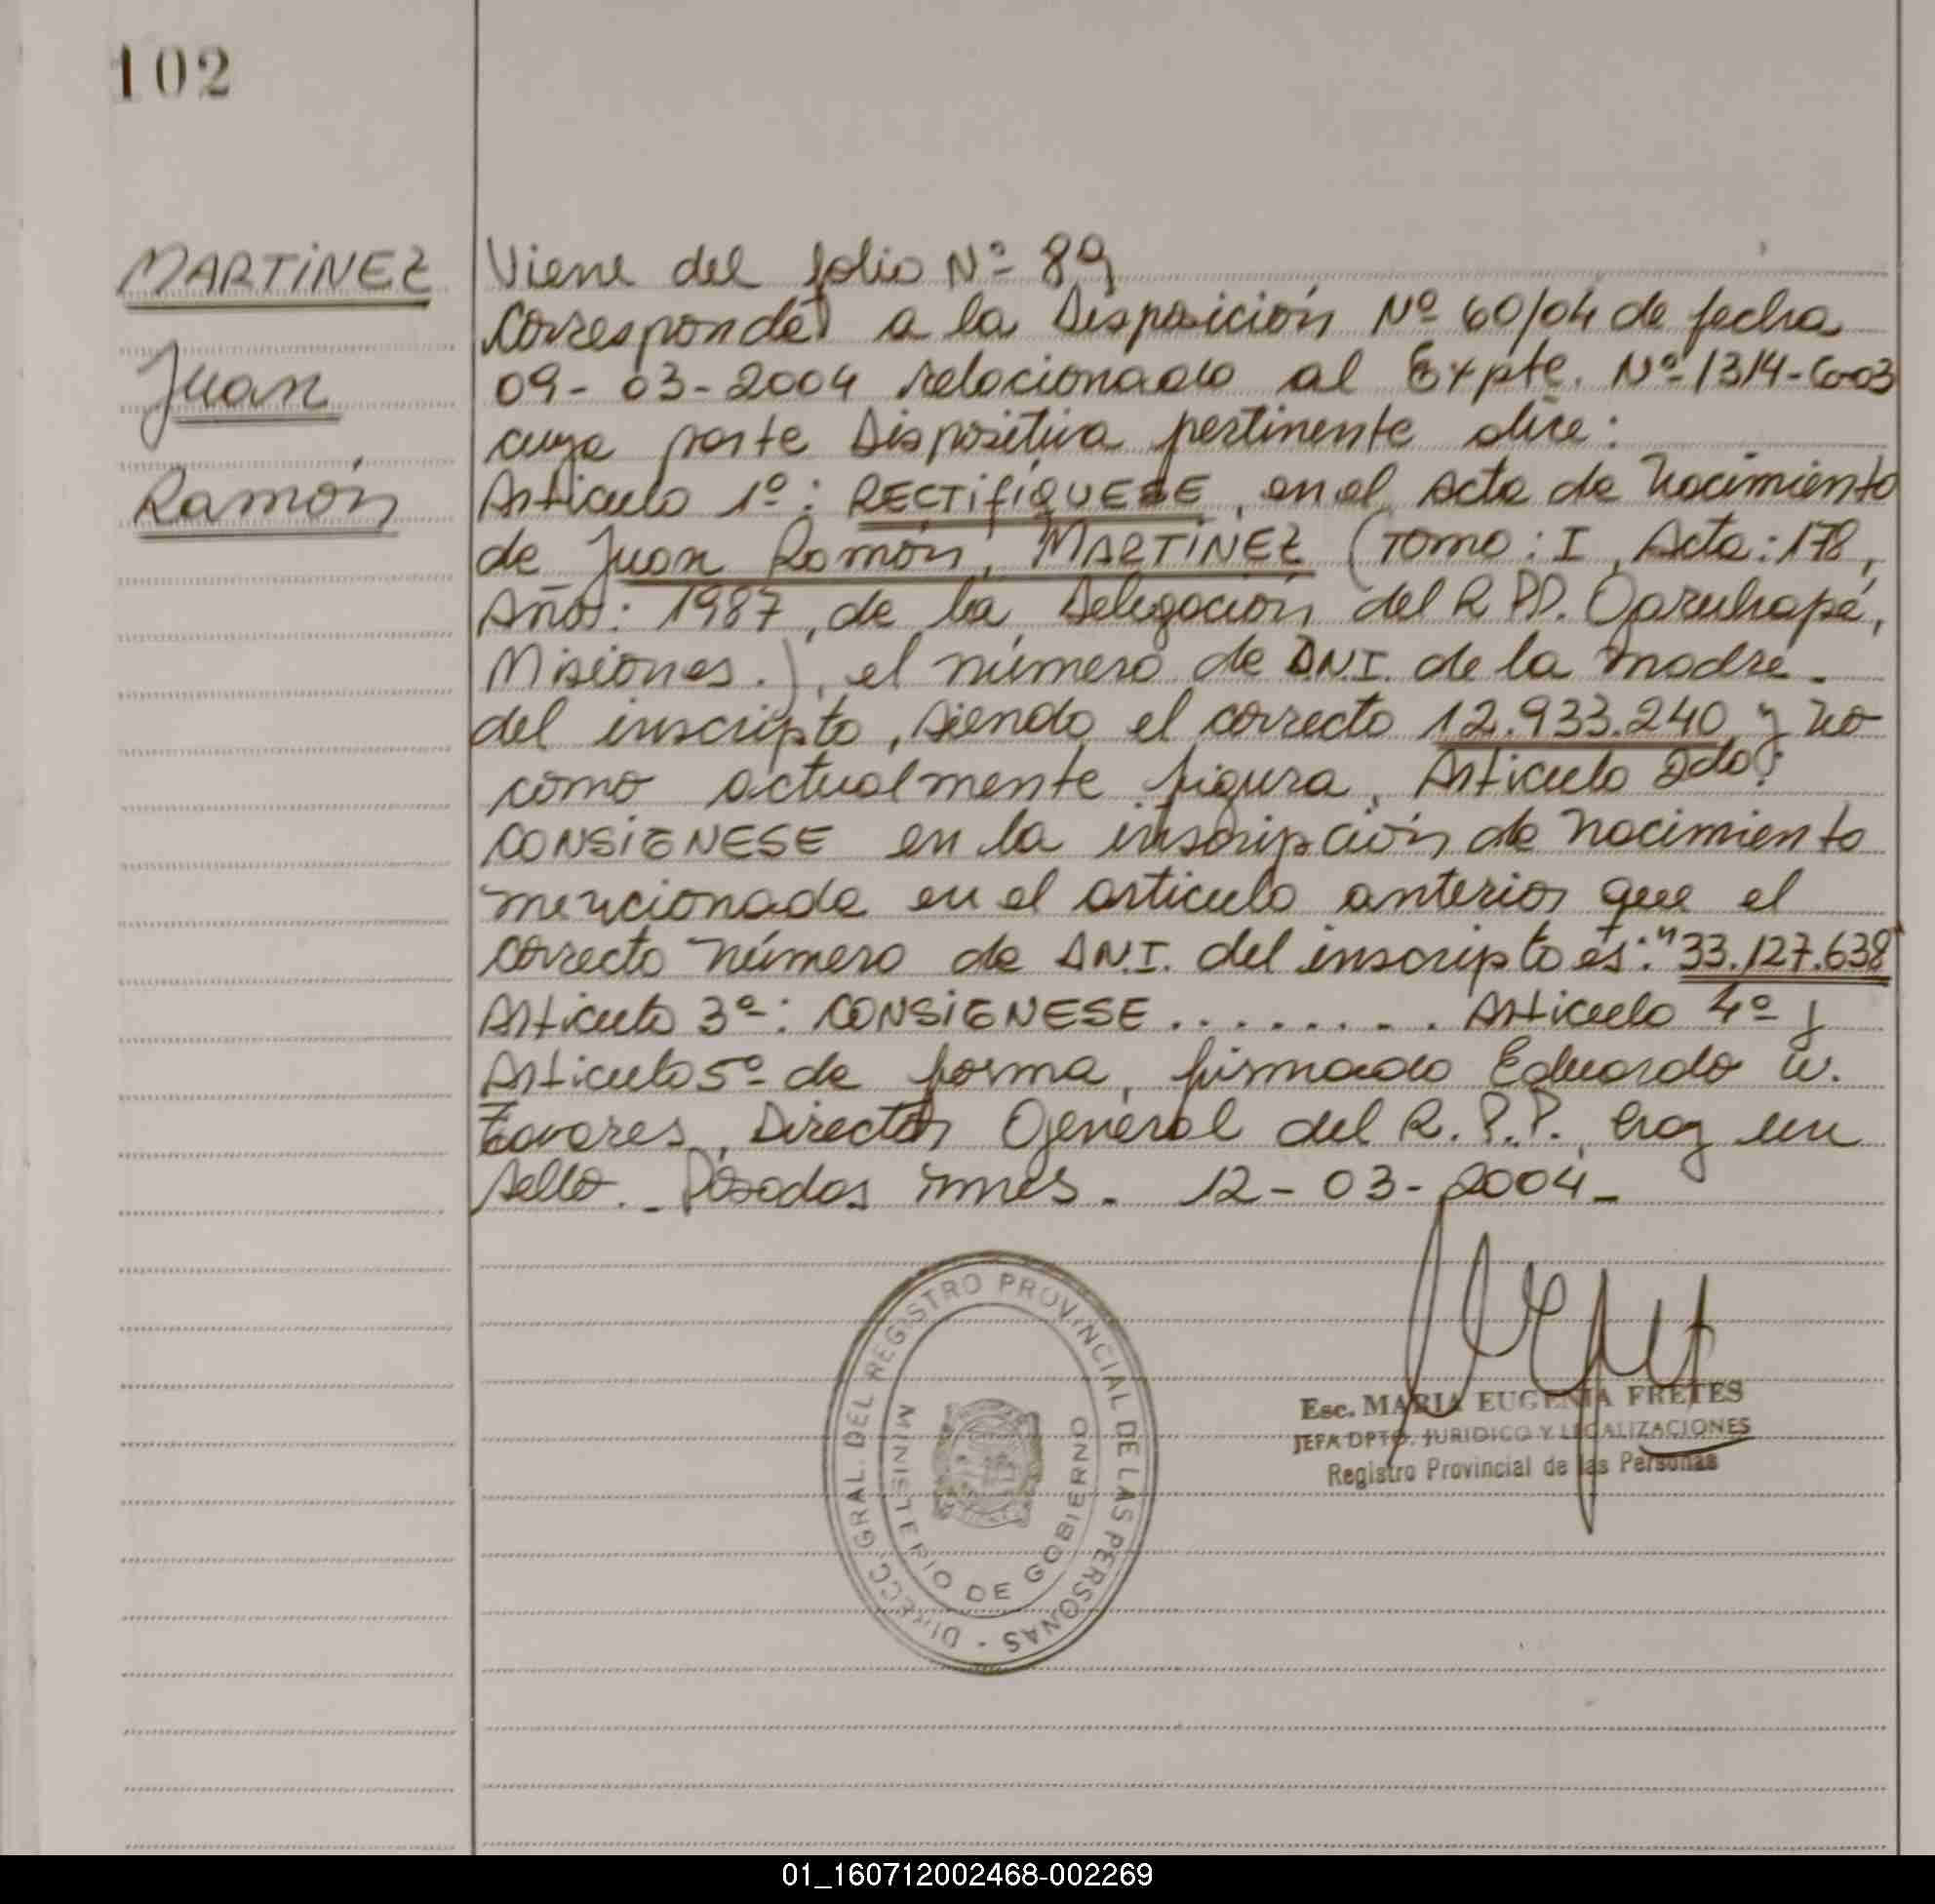 102
MARTINEZ
Juan
Ramón
Viene del folio Nº 89
Corresponde a la Disposición Nº 60/04 de fecha
09-03-2004 relacionado al Expte. Nº 1314-G-03
cuya parte Dispositiva pertinente dice:
Artículo 1º: RECTIFIQUESE, en el Acta de Nacimiento
de Juan Ramón, MARTINEZ (Tomo: I, Acta: 178,
Año: 1987, de la Delegación del R.P.P. Garuhapé,
Misiones.), el número de D.N.I. de la madre
del inscripto, siendo el correcto 12.933.240 y no
como actualmente figura. Artículo 2do:
CONSIGNESE en la inscripción de nacimiento
mencionada en el artículo anterior que el
correcto número de D.N.I. del inscripto es: "33.127.638"
Artículo 3º: CONSIGNESE......... Artículo 4º y
Artículo 5º de forma, firmado Eduardo W.
Tavares, Director General del R.P.P. hay un
sello. - Posadas Mnes. 12-03-2004 -
DIRECC. GRAL. DEL REGISTRO PROVINCIAL DE LAS PERSONAS -
MINISTERIO DE GOBIERNO
Esc. MARIA EUGENIA FRETES
JEFA DPTO. JURIDICO Y LEGALIZACIONES
Registro Provincial de las Personas
01_160712002468-002269